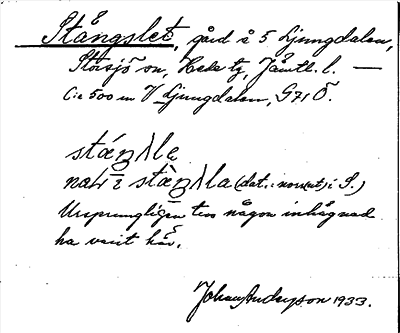 Stångslet, gård å 5 Ljungdalen,
Storsjö sn, Hede tg, Jämtl. l. —
C:a 500 m V Ljungdalen, S71Ö.
stáŋsle
i stàŋsla (dat. : i S.)
Ursprungligen tros någon inhägnad
ha varit här.
Johan Anderson 1933.